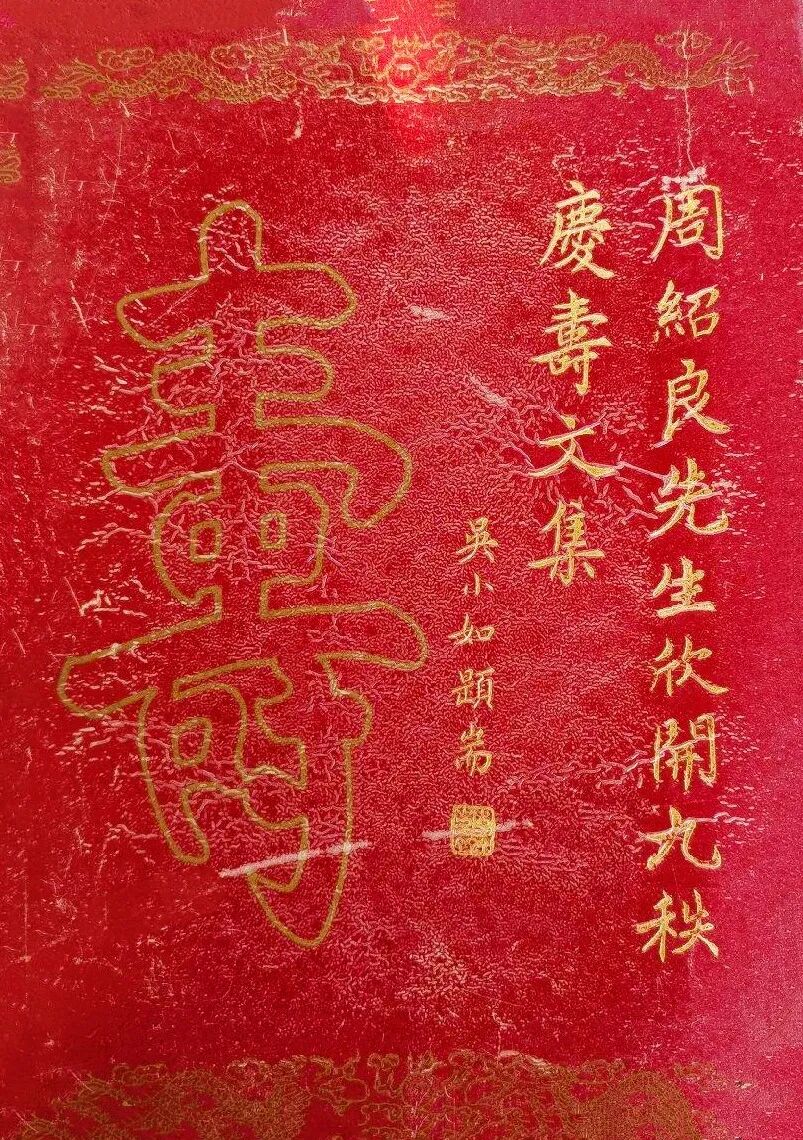 周紹良先生欣開九秩
慶壽文集
吳小如題耑
壽